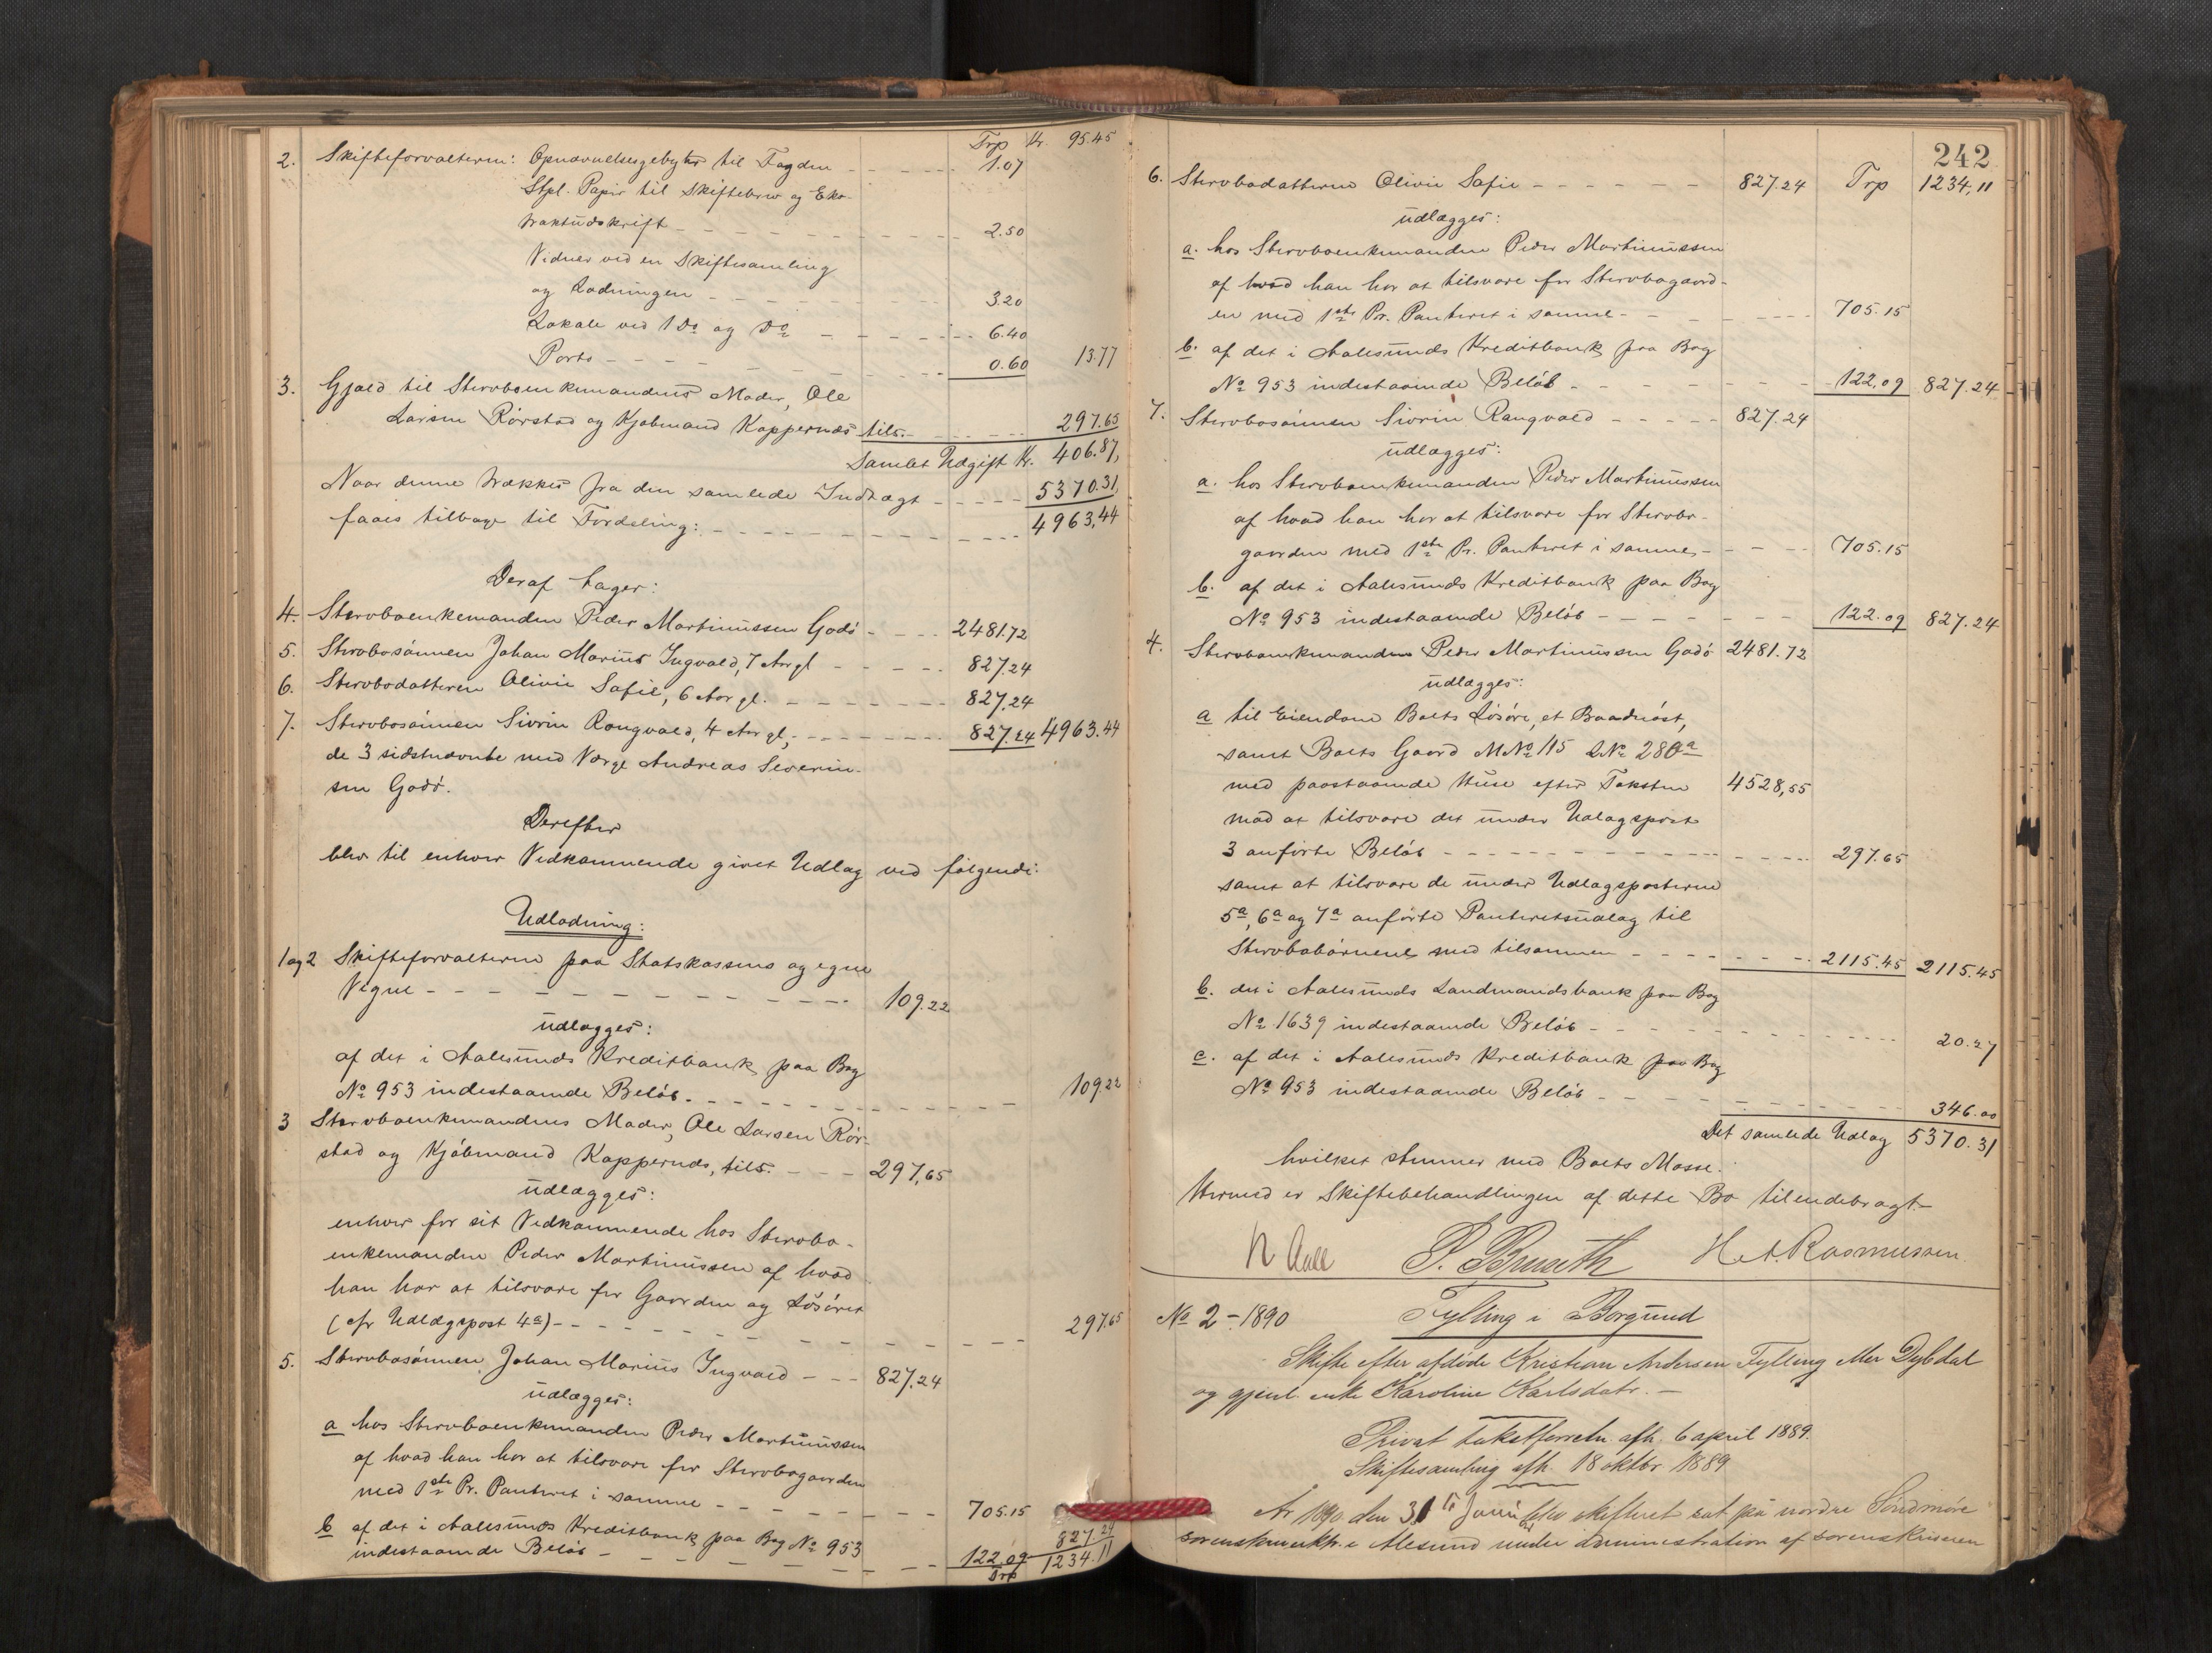 Trp Kr. 95.45
2. Skifteforvalteren: Opnævnelsesgebyhr til Fogden - - - - - 1.07
Stpl. Papir til Skiftebrev og Eks-
traktudskrift - - - - - - - - - 2.50
Vidner ved en Skiftesamling
og Lodningen - - - - - - - - 3.20
Lokale ved 1 Do og Do - - - - - - 6.40
Porto - - - - - - - - - - 0.60 13.77
3. Gjæld til Stervboenkemandens Moder, Ole
Larsen Rörstad og Kjöbmand Koppernæs tils. - - - - - 297.65
Samlet Udgift Kr. 406.87,
Naar denne trækkes fra den samlede Indtægt - - - - - 5370.31,
faaes tilbage til Fordeling: - - - - - - - - - - 4963,44
Deraf tager:
4. Stervboenkemanden Peder Martinussen Godö - - - - 2481.72
5. Stervbosönnen Johan Marius Ingvald, 7 Aar gl - - - - - 827.24
6. Stervbodatteren Olivie Sofie, 6 Aar gl. - - - - - - - 827.24
7. Stervbosönnen Sivrin Rangvald, 4 Aar gl, - - - - - - - 827.24 4963.44
de 3 sidstnævnte med Værge Andreas Severin-
sen Godö.
Derefter
blev til enhver Vedkommende givet Udlæg ved følgende:
Udlodning:
1 og 2 Skifteforvalteren paa Statskassens og egne
Vegne - - - - - - - - - - - - - 109.22
udlægges:
af det i Aalesunds Kreditbank paa Bog
No 953 indestaaende Belöb. - - - - - - - - - - - 109.22
3 Stervboenkemandens Moder, Ole Larsen Rör-
stad og Kjöbmand Koppernæs, tils. - - - - 297,65
udlægges:
enhver for sit Vedkommende hos Stervbo-
enkemanden Peder Martinussen af hvad
han har at tilsvare for Gaarden og Lösöret
(cfr Udlægspost 4a) - - - - - - - - - - - - - 297.65
5. Stervbosönnen Johan Marius Ingvald - - - 827.24
udlægges:
a hos Stervboenkemanden Peder Martinussen
af hvad han har at tilsvare for Stervbogaarden
med 1ste Pr. Panteret i samme - - - - - - - - 705.15
b af det i Aalesunds Kreditbank paa Bog No 953
indestaaende Belöb - - - - - - - - - 122.09 827.24
Trp 1234.11
242
6. Stervbodatteren Olivie Sofie - - - - - - 827.24 Trp 1234,11
udlægges:
a. hos Stervboenkemanden Peder Martinussen
af hvad han har at tilsvare for Stervbogaard-
en med 1ste Pr. Panteret i samme - - - - - - 705.15
b. af det i Aalesunds Kreditbank paa Bog
No 953 indestaaende Belöb - - - - - - - - 122.09 827.24
7. Stervbosönnen Sivrin Rangvald - - - - - 827.24
udlægges:
a. hos Stervboenkemanden Peder Martinussen
af hvad han har at tilsvare for Stervbo-
gaarden med 1ste Pr. Panteret i samme, - - - - 705.15
b. af det i Aalesunds Kreditbank paa Bog
No 953 indestaaende Belöb - - - - - - - 122.09 827.24
4. Stervboenkemanden Peder Martinussen Godö 2481.72
udlægges:
a til Eiendom Boets Lösöre, et Baadnöst,
samt Boets Gaard MNo 115 LNo 280a
med paastaaende Huse efter Taksten 4528,55
mod at tilsvare det under Udlægspost
3 anförte Belöb - - - - - - - - - - - - - 297.65
samt at tilsvare de under Udlægsposterne
5a, 6a og 7a anförte Panteretsudlæg til
Stervbobörnene med tilsammen - - - - - - - 2115.45 2115.45
b. det i Aalesunds Landmandsbank paa Bog
No 1639 indestaaende Belöb - - - - - - - - - - 20.27
c. af det i Aalesunds Kreditbank paa Bog
No 953 indestaaende Belöb - - - - - - - - - - 346.00
Det samlede Udlæg 5370.31
hvilket stemmer med Boets Masse.
Hermed er Skiftebehandlingen af dette Bo tilendebragt -
N Aall P. Bruseth H. A. Rasmussen
No 2 - 1890 Fylling i Borgund
Skifte efter afdöde Kristian Andersen Fylling eller Dybdal
og gjenl. enke Karoline Karlsdatr. -
Privat takstforretn. afh. 6 april 1889.
Skiftesamling afh. 18 oktbr. 1889
År 1890 den 31 blev skifteret sat på nordre Söndmöre
sorenskriverktr. i Ålesund under administration af sorenskriveren